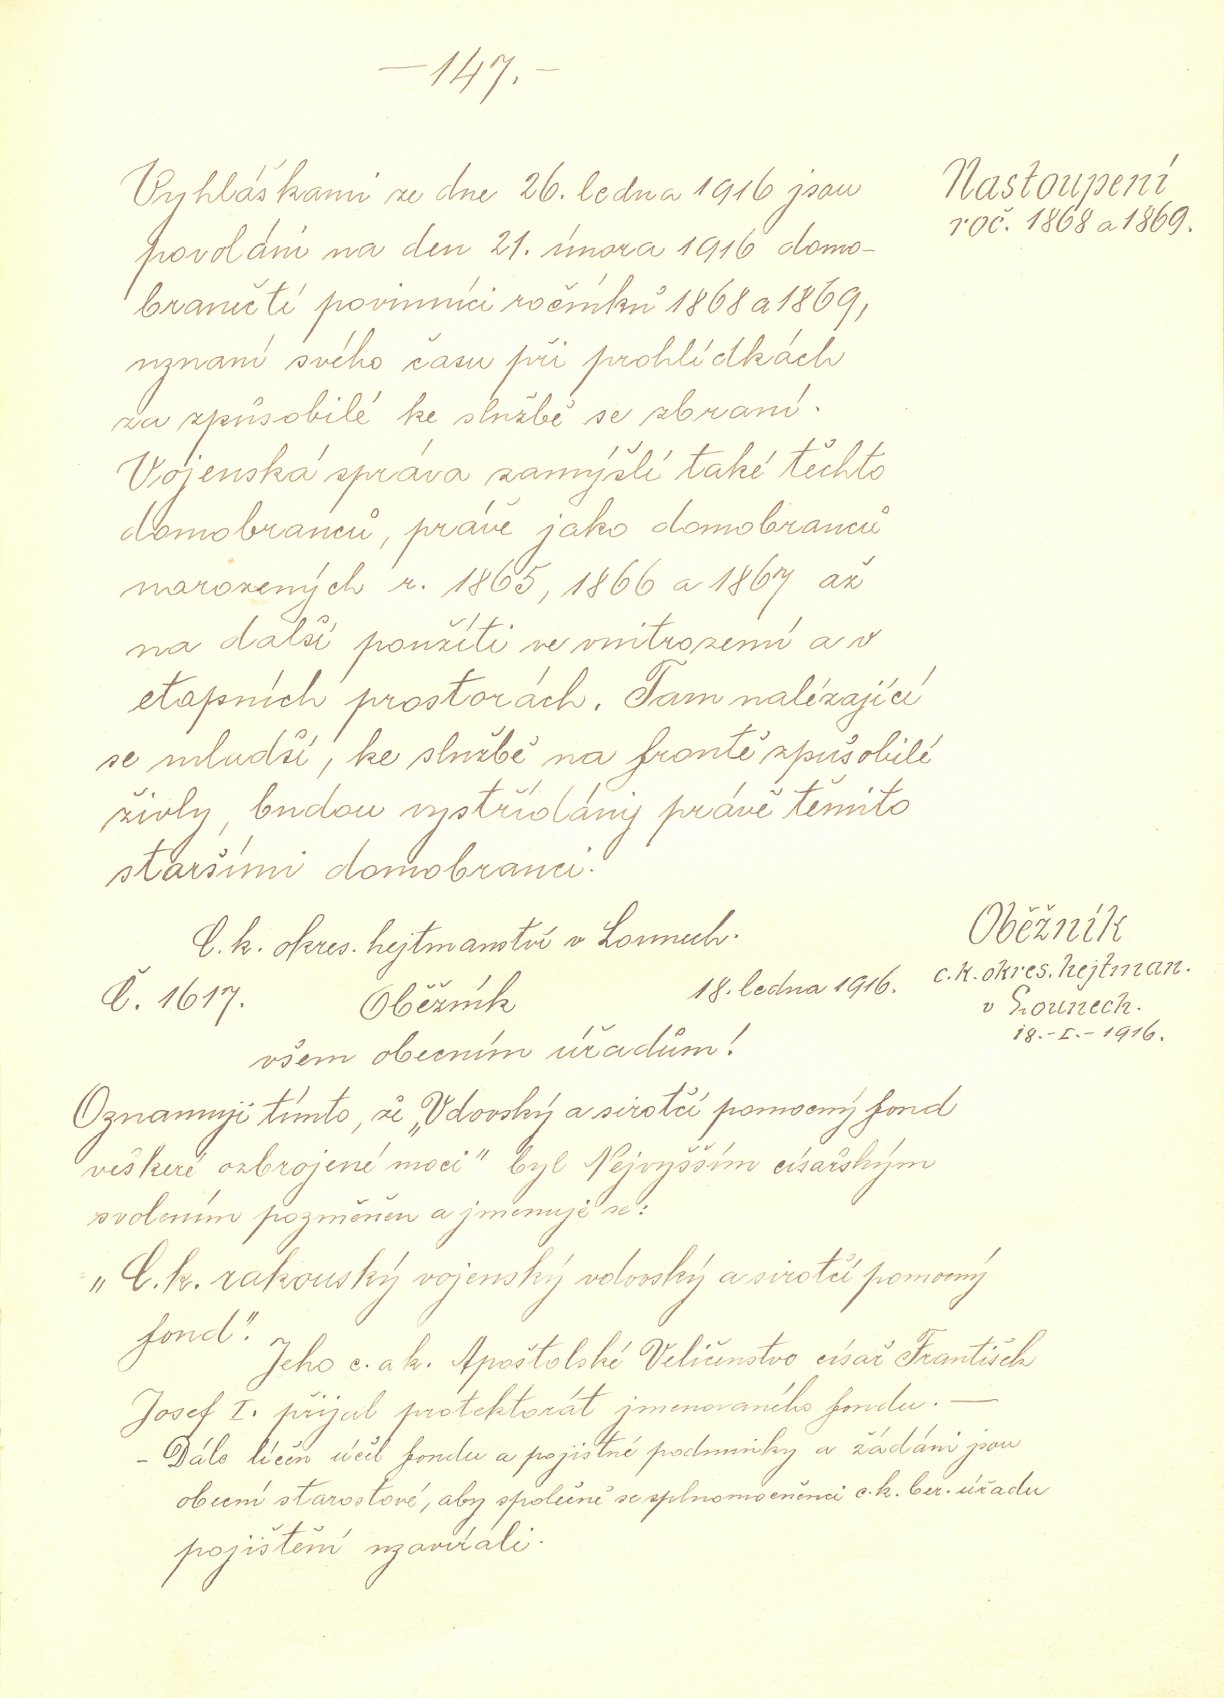 — 147. —
Vyhláškami ze dne 26. ledna 1916 jsou
povoláni na den 21. února 1916 domo-
branečtí povinníci ročníků 1868 a 1869,
uznaní svého času při prohlídkách
za způsobilé ke službě se zbraní.
Vojenská správa zamýšlí také těchto
domobranců, právě jako domobranců
narozených r. 1865, 1866 a 1867 až
na další použíti ve vnitrozemí a v
etapních prostorách. Tam nalézající
se mladší, ke službě na frontě způsobilé
živly, budou vystřídány právě těmito
staršími domobranci.
Nastoupení
roč. 1868 a 1869.
C. k. okres. hejtmanství v Lounech.
Č. 1617. Oběžník 18. ledna 1916.
všem obecním úřadům!
Oběžník
c. k. okres. hejtman.
v Lounech.
18. - I. - 1916.
Oznamuji tímto, že „Vdovský a sirotčí pomocný fond
veškeré ozbrojené moci" byl Nejvyšším císařským
svolením pozměněn a jmenuje se:
„C. k. rakouský vojenský vdovský a sirotčí pomocný
fond".
Jeho c. a k. Apoštolské Veličenstvo císař František
Josef I. přijal protektorát jmenovaného fondu. —
- Dále líčen účel fondu a pojistné podmínky a žádáni jsou
obecní starostové, aby společně se splnomocněnci c. k. ber. úřadu
pojištění uzavírali.